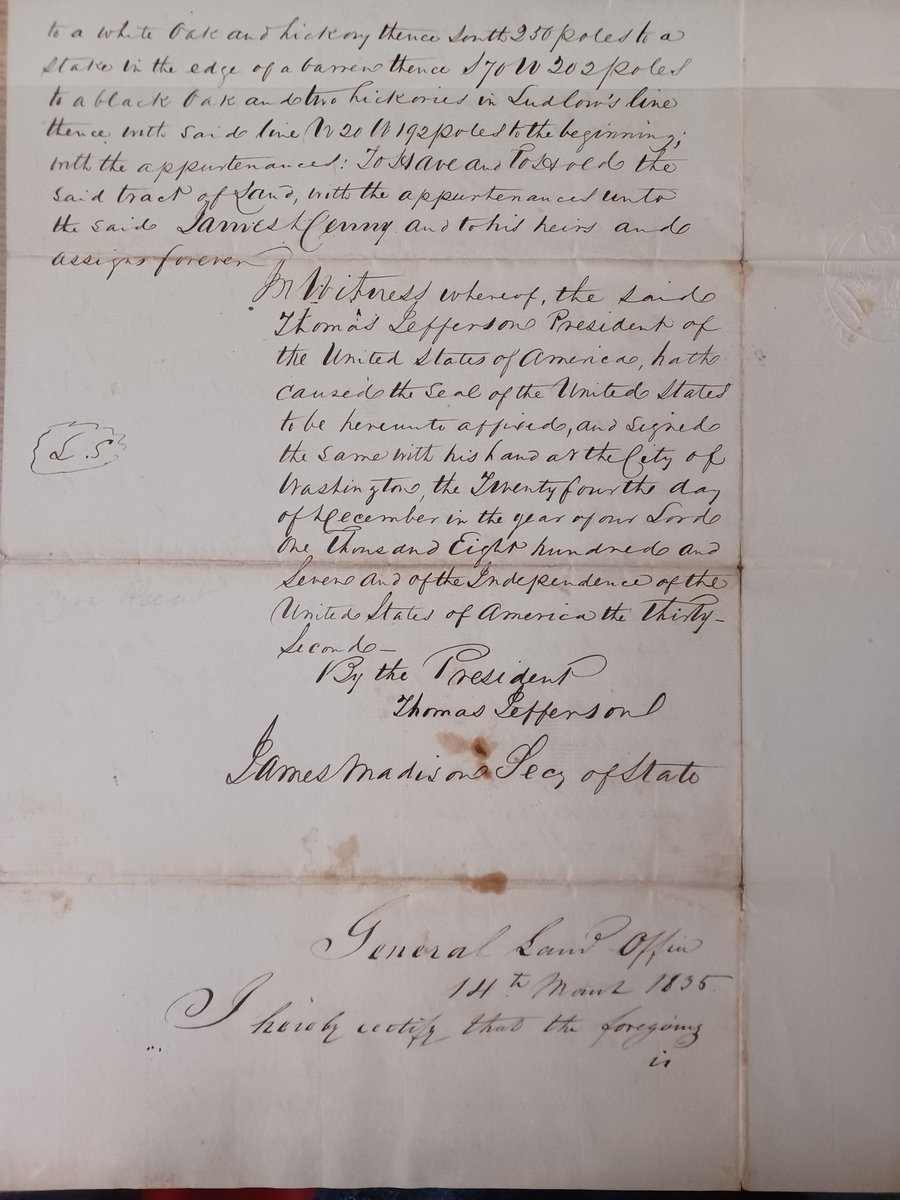 to a white Oak and hickory thence South 250 poles to a
stake in the edge of a barren thence S70W 202 poles
to a black Oak and two hickories in Ludlow's line
thence with said line N20W 192 poles to the beginning;
with the appurtenances: To Have and To Hold the
said tract of Land, with the appurtenances unto
the said James and to his heirs and
assigns forever
In Witness whereof, the said
Thomas Jefferson President of
the United States of America, hath
caused the Seal of the United States
to be hereunto affixed, and signed
the same with his hand at the City of
Washington, the Twenty fourth day
of December in the year of our Lord
One Thousand Eight hundred and
Seven and of the Independence of the
United States of America the Thirty-
Second-
L.S
By the President
Thomas Jefferson
James Madison Secy of State
General Land Office
14th March 1835.
I hereby certify that the foregoing
is